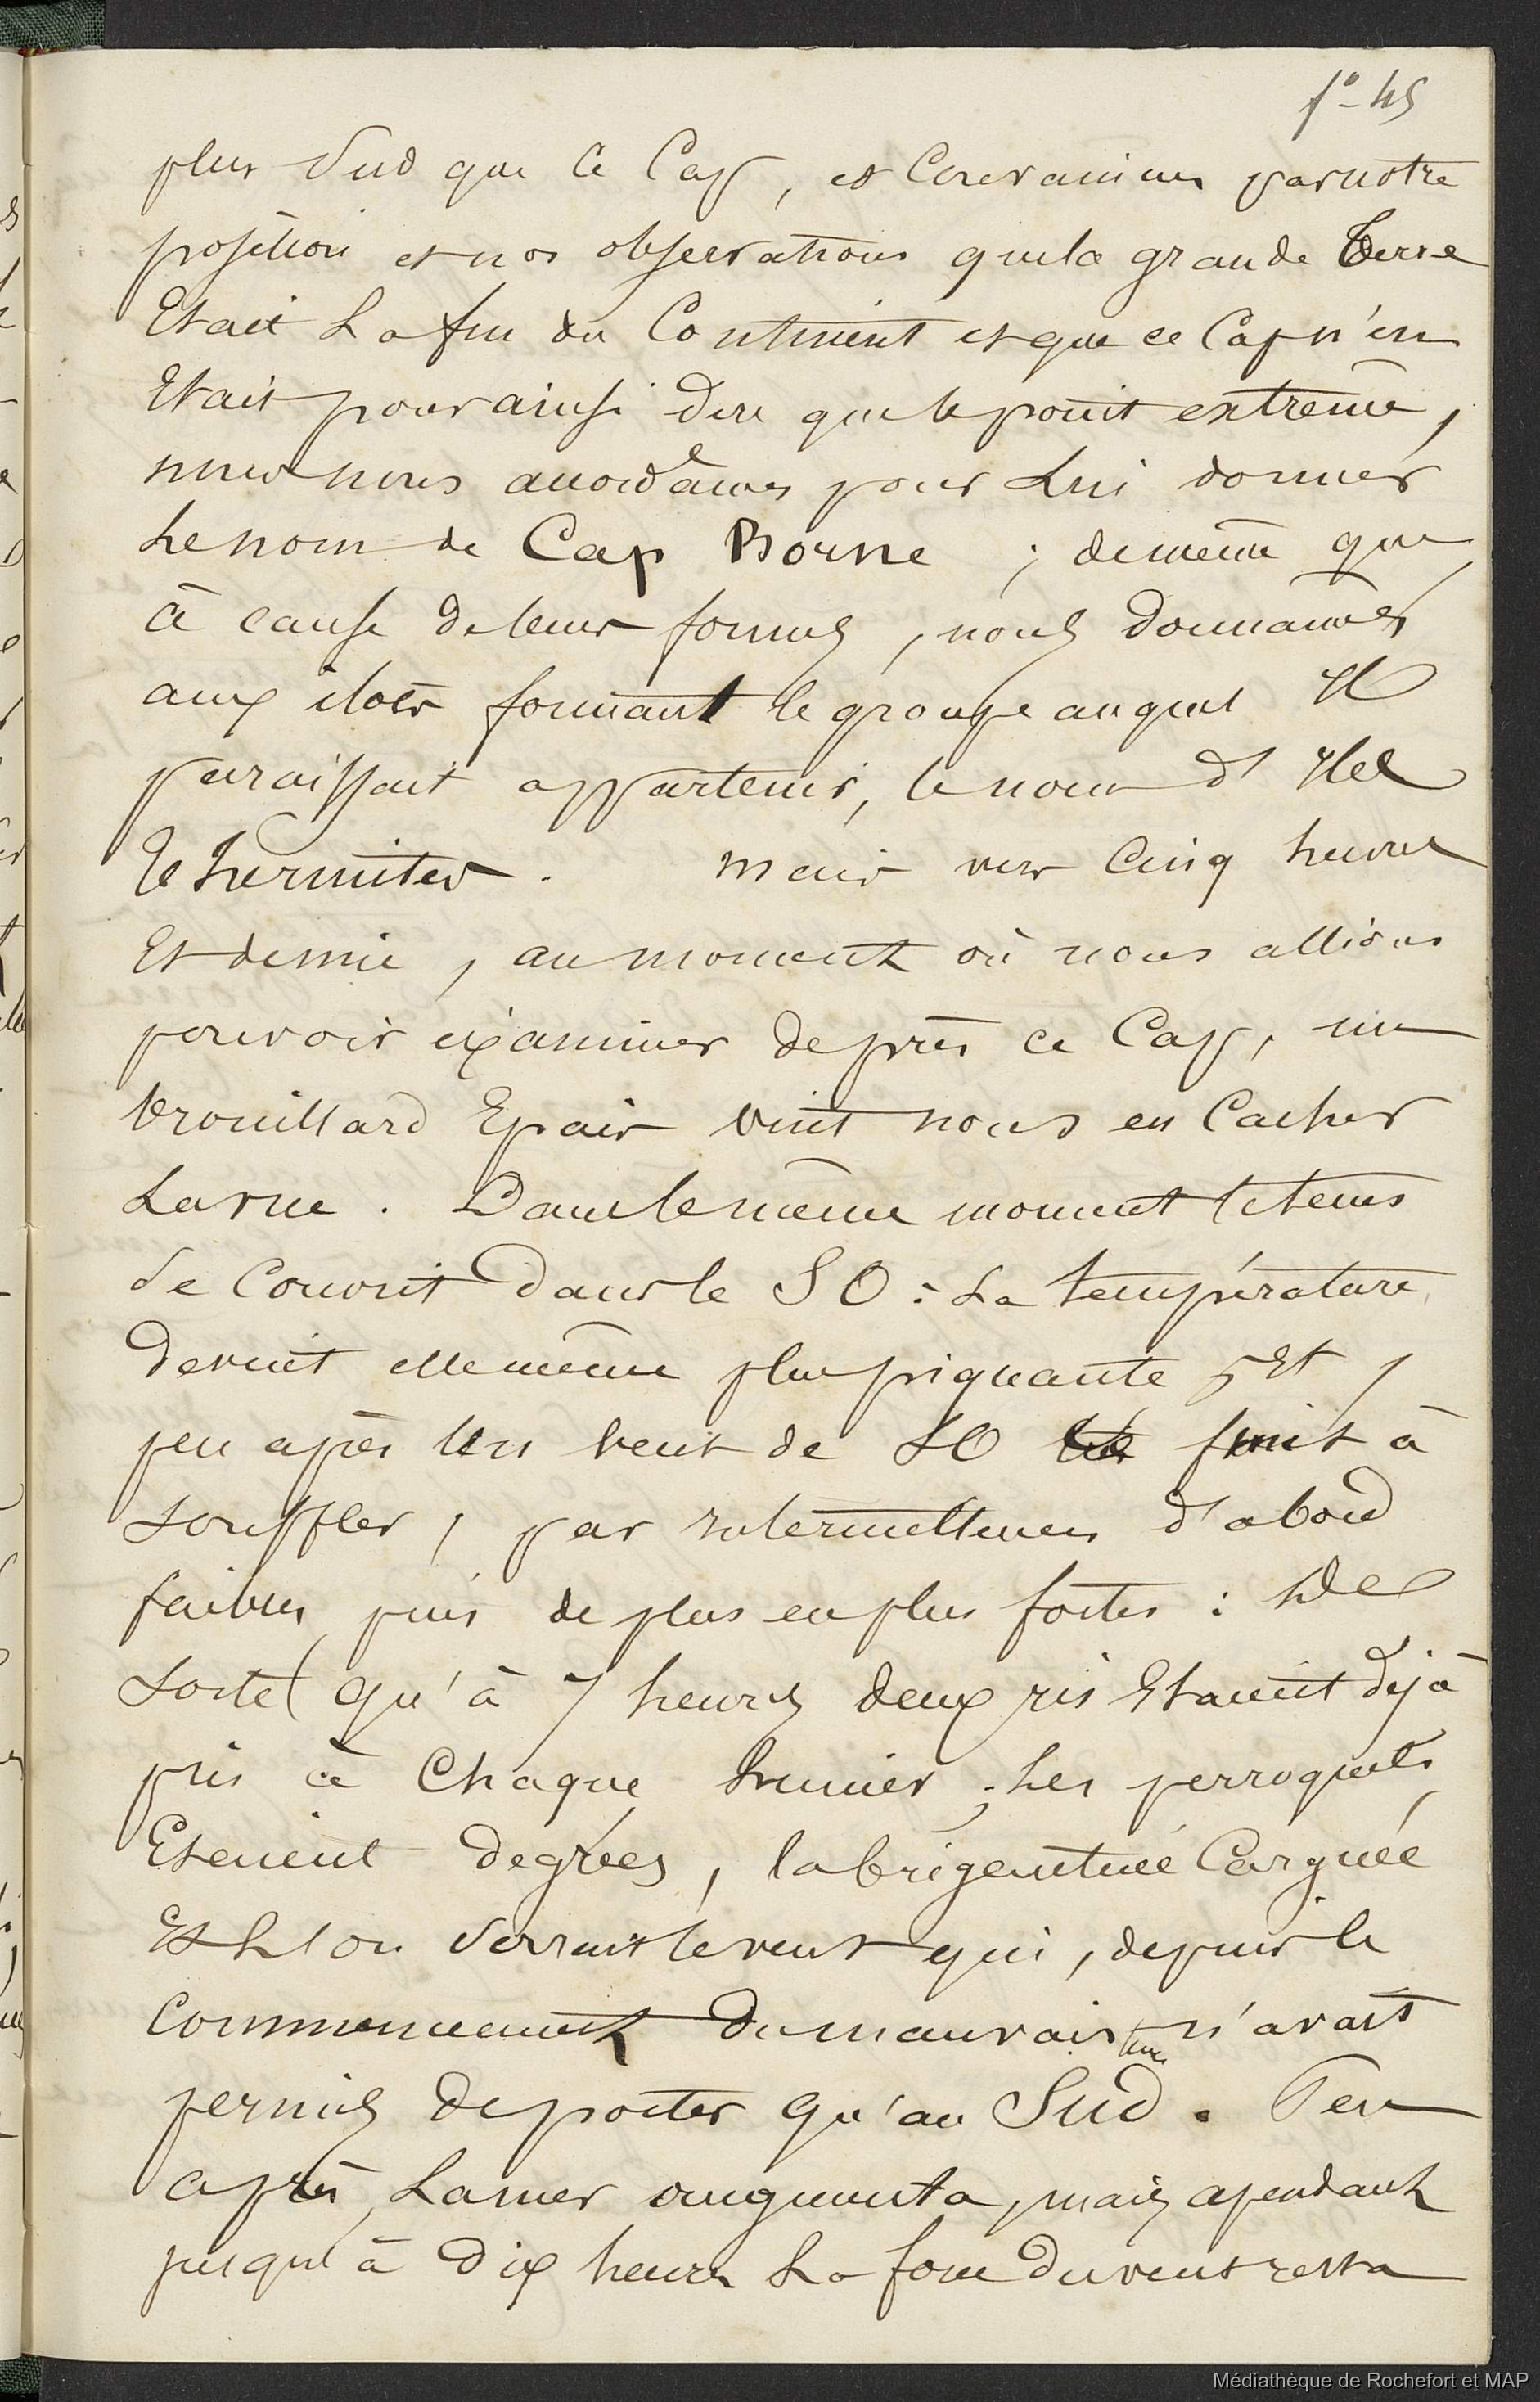 fo- 45
plus Sud que ce Cap, et Convaincus par notre
position et nos observations que la grande terre
Etait La fin du Continent et que ce Cap n'en
Etait pour ainsi dire que le point extrême,
nous nous accordâmes pour Lui donner
Le nom de Cap Borne ; de même que
à cause de leurs formes, nous Donnames
aux ilots formant le groupe auquel Il
paraissait appartenir, le nom d'Iles
Lhermites. mais vers Cinq heures
Et demie, au moment où nous allions
pouvoir éxaminer de près ce Cap, un
brouillard Epais vint nous en Cacher
La vue. Dans le même moment le tems
se Couvrit dans le SO : La température
devint elle même plus piquante, Et,
peu après Un vent de SO finit à
souffler, par intermittences d'abord
faibles puis de plus en plus fortes : De
sorte qu'à 7 heures deux ris Etaient déjà
pris à Chaque hunier ; Les perroquets
Etaient degrées, la brigantine Carguée
Et L'on serrait le vent qui, depuis le
Commencement du mauvais tems n'avait
permis de porter qu'au Sud. Peu
après, La mer augmenta, mais cependant
jusqu'à dix heures La force du vent resta
Médiathèque de Rochefort et MAP